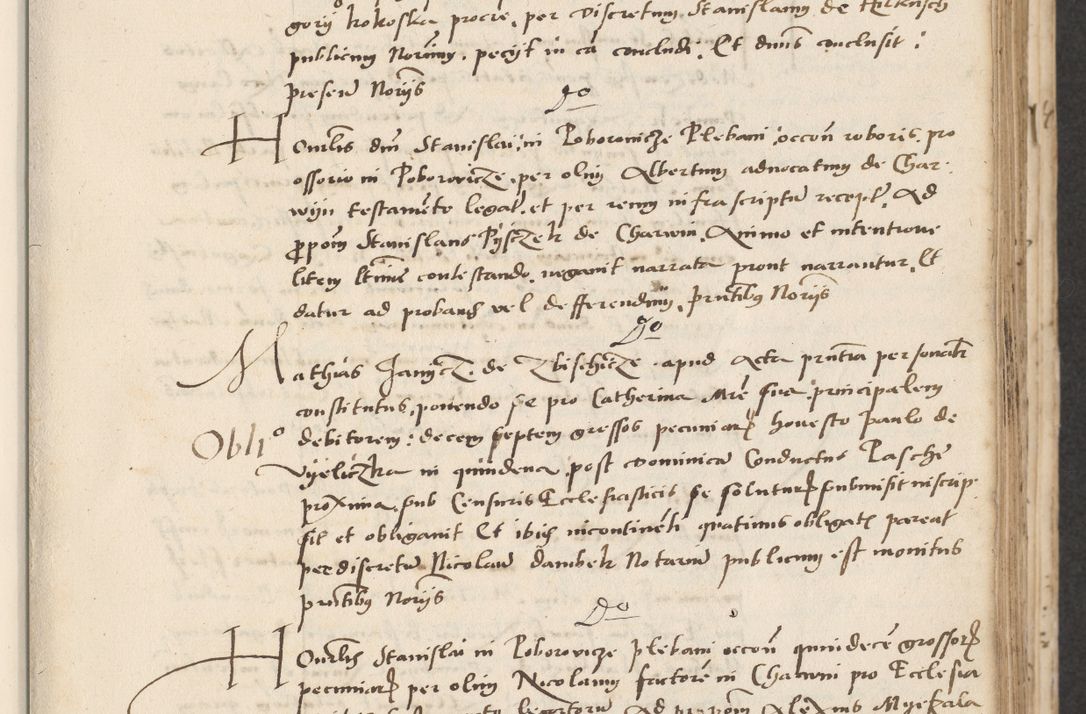 gorij kokoska procre, per discretum Stanislaum de Ilkusch
publicum Norium, pecijt in ca concludi. Et dnus conclusit.
presen Norijs
Do
Honrlis dni Stanislai in Poborovicze Plebani occon roboris pro
ossorio in Poborovicze, per olim Albertum advocatum de Char
wijn testamento legat. et per reum infrascriptu recept. Ad
propom Stanislaus Pysczek de Charwin. Animo et intentione
litem ltime contestando, negavit narrata prout narrantur. Et
datur ad proband vel defferendum, prntibus Norijs
Do
Mathias Janycz de Zbischicze apud Acta prntia personalr
constitutus, ponendo se pro Catherina Mre sua principalem
debitorem: decem septem grossos pecuniar honesto Paulo de
Oblio
Vyeliczka in quindena post dominica Conductus Pasche
proxima, sub Censuris Ecclesiasticis se soluturum submisit inscrip
sit et obligavit Et ibi incontinenti quatinus obligat pareat
per discretu Nicolau dambek Notariu publicum est monitus
prntibus Norijs
Do
Honrlis Stanislai in Poborovicze plebani occon quindece grossor
pecuniar per olim Nicolaum factore in Charwin pro Ecclesia
legatoru Ad propom Alexius Myekala